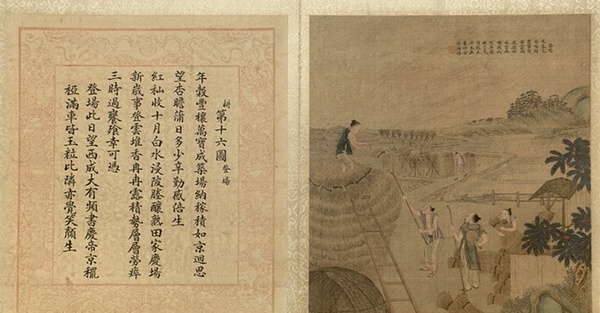 耕 第十六圖 登場
年穀豐穰萬寶成築場納稼積如京迴思
望杏瞻蒲日多少辛勤感倍生
紅秈收十月白水浸陂塍釀熟田家慶場
新歲事登雲堆香冉冉露積勢層層勞瘁
三時過饔飱幸可憑
登場此日望西成大有頻書慶帝京穲
稏滿車皆玉粒比隣亦覺笑顏生